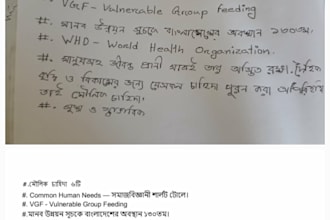 VGF - Vulnerable Group Feeding
#. মানব উন্নয়ন সূচকে বাংলাদেশের অবস্থান ১৩৩তম।
#. WHO - World Health Organization.
#. মানুষসহ জীবন্ত প্রাণী মাত্রই তার অস্তিত্ব রক্ষা, দৈহিক
বৃদ্ধি ও বিকাশের জন্যে যেসকল চাহিদা পূরন করা অপরিহার্য
তাই মৌলিক চাহিদা।
#. সুস্থ ও স্বাভাবিক
#.মৌলিক চাহিদা ৬টি
#. Common Human Needs — সমাজবিজ্ঞানী শার্লট টোলে।
#. VGF - Vulnerable Group Feeding
#.মানব উন্নয়ন সূচকে বাংলাদেশের অবস্থান ১৩৩তম।